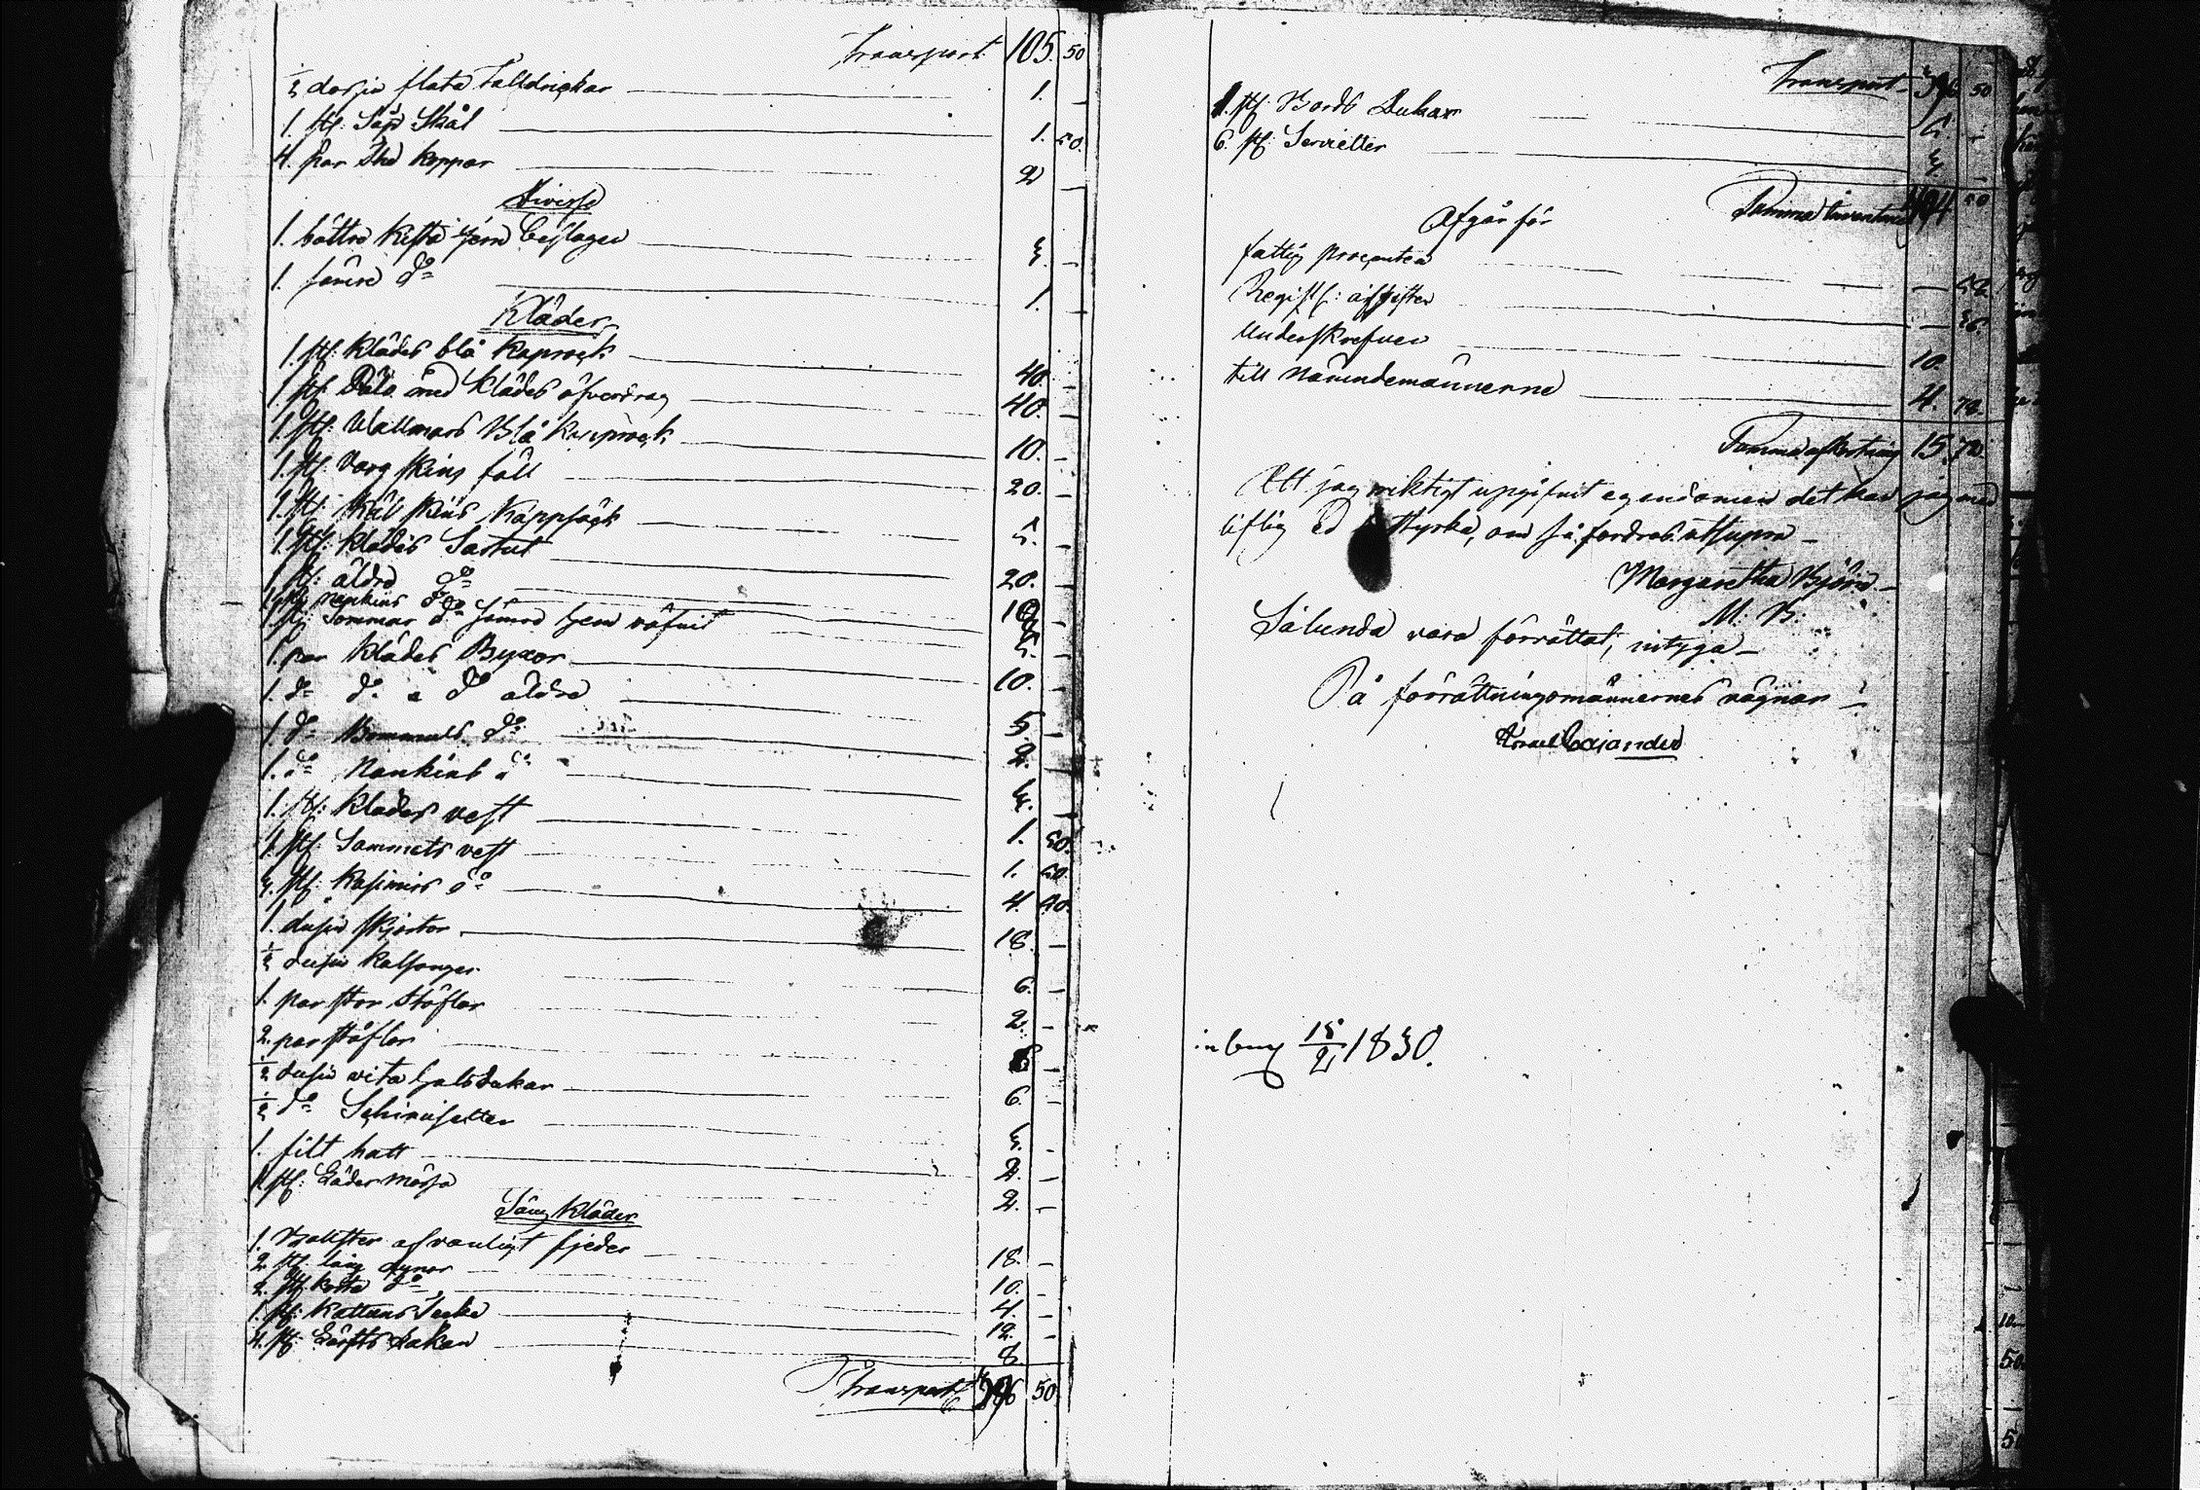 Transport 105. 50
½ dosin flata Talldrickar 1. –
1. st: Såp Skål 1. 50.
4. par The koppar 2 –
Diverse
1. bättre kista Jern beslagen 3. –
1. sämre do 1. –
Kläder
1. st: klädes blå Kaprock 40. –
1 st: Päls med klädes öfverdrag 40. –
1. st: Wallmars Blå Kapprock 10. –
1. st: Varg skins fäll 20. –
1. st: Käl skins Kappsäck 5. –
1. st: klädes Sartut 20. –
1 st: äldre do 10 –
1. st: nankins do
1. st: Sommar do sämre hem väfvit 5. –
1. par klädes Byxor 10. –
1. do do a do äldre 5. –
1. do Bommuls do 2. –
1. do Nankins do 3. –
1. st: klädes vest 1. 50.
1. st: Sammets vest 1. 50.
3. st: Kasimirs do 4. 50.
1. dusin skjortor 18. –
½ dusin kalsonger 6. –
1. par stor stöflar 2. –
2. par stöflor 6 –
½ dusin vita halsdukar 6. –
½ do Schirnisetter 3. –
1. filt hatt 2. –
1 st: Läder mössa 2. –
Säng kläder
1. Bollster af vanligt fjeder 18. –
2. st: lång dynor 10. –
2. st: korta do 4. –
1. st: Kattuns Tecke 12. –
4. st: Lärfts Lakan 8
Transport 396 50
Transport 396 50
1. st: Bords Dukar 5 –
6. st: Servietter 3 –
Summa Inventarie 404 50
Afgår för
fattig procenten –
Regist: afgiften – 36.
Underskrefven 10.
till närmndemännerne 4. 72.
Summa afkortning 15. 70.
Att jag riktigt uppgifvit egendomen det kan jag med
liflig Ed styrka, om så fordras utsupra –
Margaretha Björn –
M: B:
Sålunda vara förrättat, intyga –
På förrättningsmännernes vägnar –
Israel Cajander
inbeng 18/2 1830.